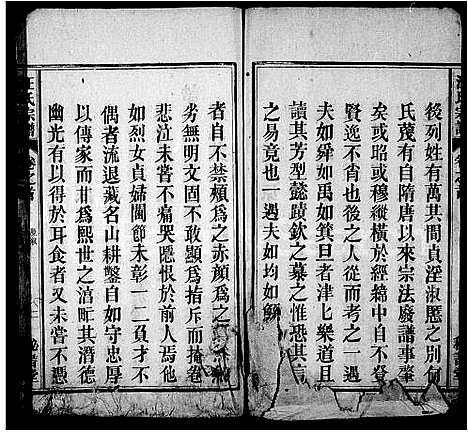 後列姓有萬其間貞淫淑慝之別何
氏蔑有自隋唐以來宗法廢譜事肇
矣或昭或穆縱橫於經緯中自不
賢逸不肖也後之人從而考之一遇
夫如舜如禹如箕旦者津匕樂道且
讀其芳型懿蹟欽之慕之惟恐其言
之易竟也一遇夫如均如
者自不禁頳為之赤顏為之
劣無明文固不敢顯為指斥掩卷
悲泣未嘗不痛哭慝恨於前人焉他
如烈女貞婦閫節未彰一二負才不
偶者流退藏名山耕鑿自如守忠厚
以傳家而甘為熙世之氓其潛德
幽光有以得於耳食者又未嘗不憑
汪氏宗譜
卷之首